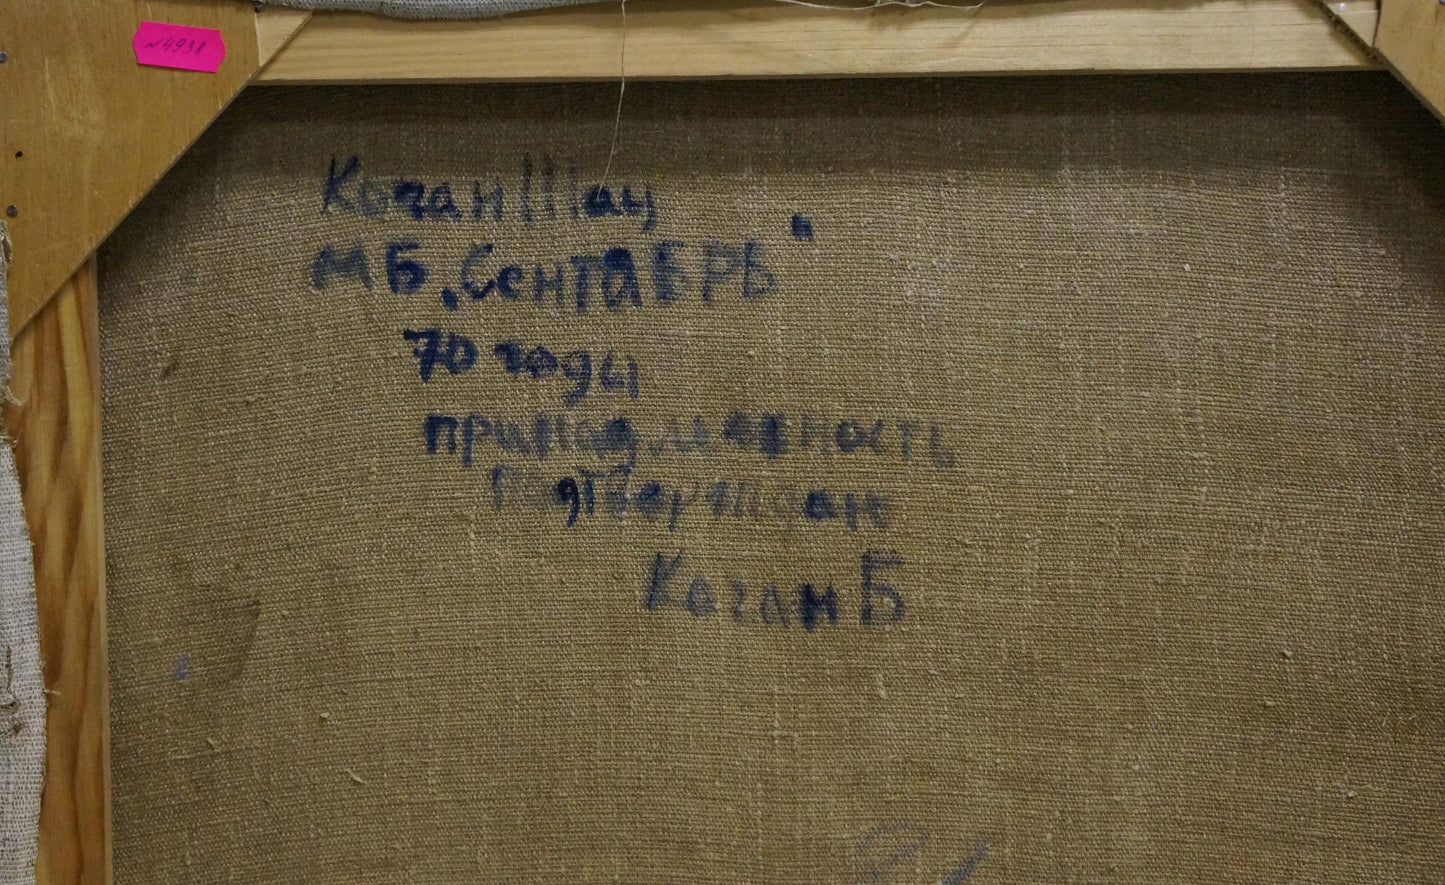 №4938
Коган Шац
МБ „Сентябрь"
70 годы
принадлежность
подтверждаю
Коган Б